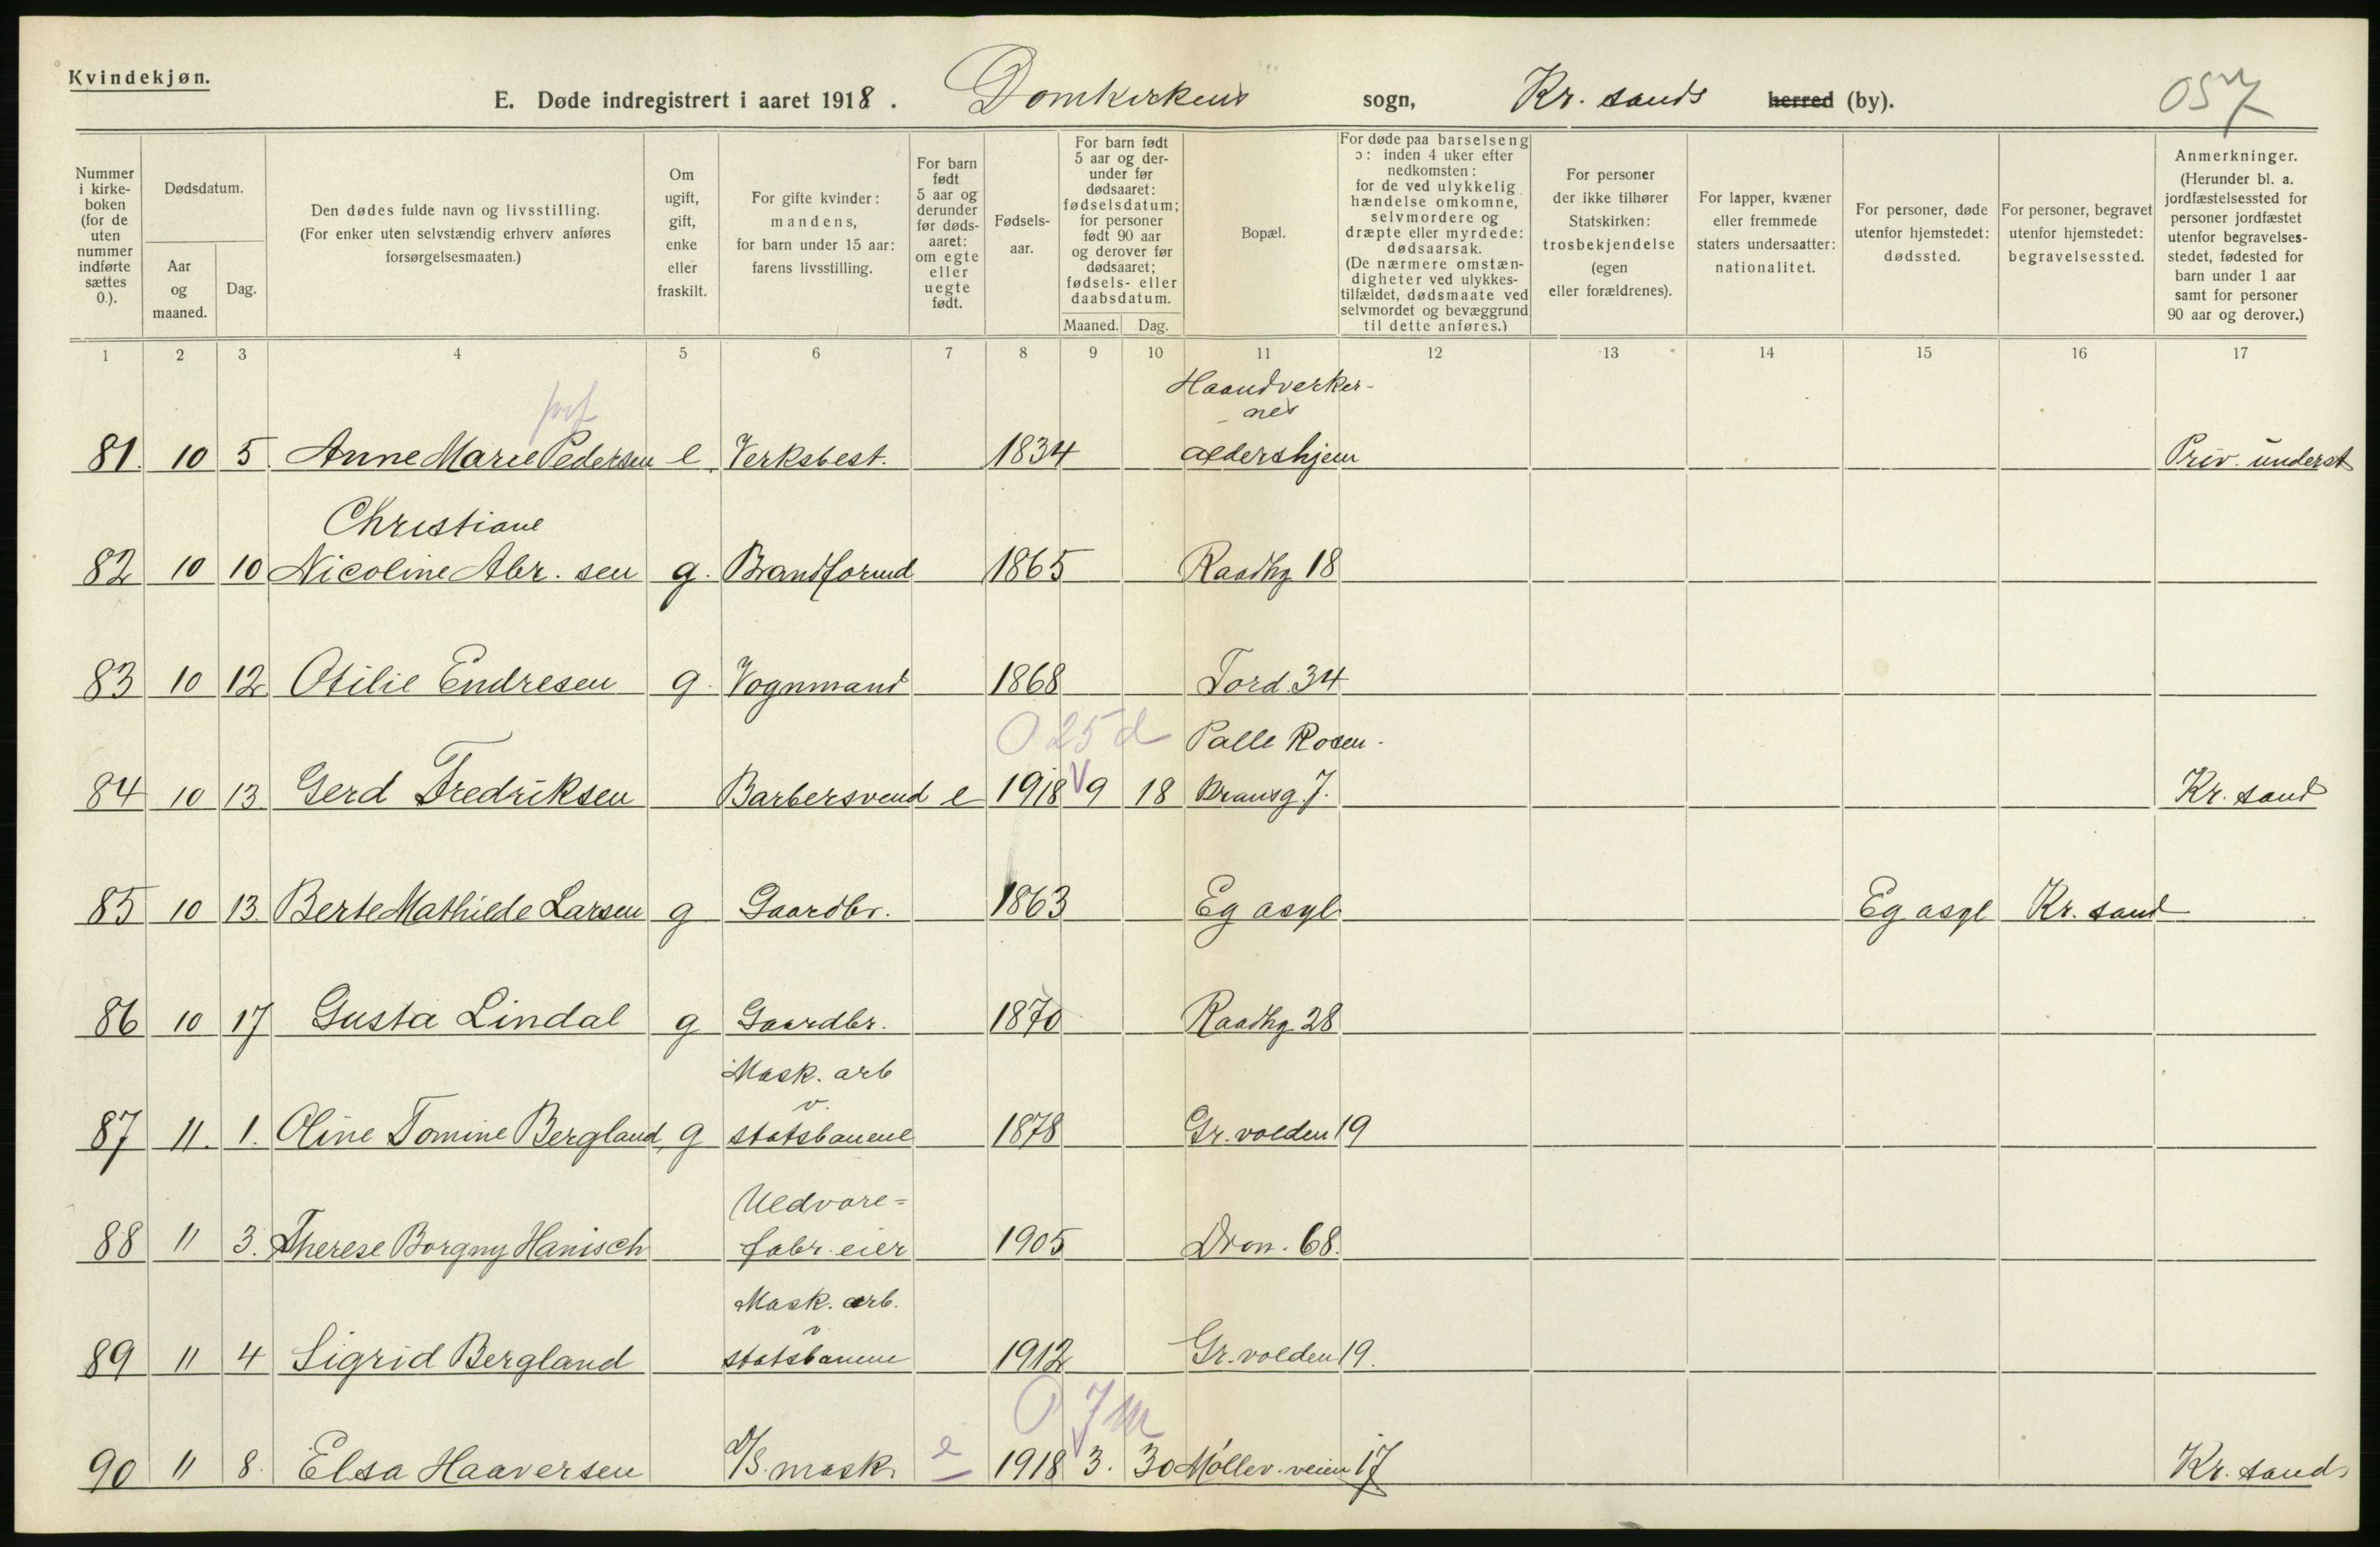 Kvindekjøn.
E. Døde indregistrert i aaret 1918. Domkirkens sogn, Kr. sands herred (by). 057
Nummer i kirkeboken (for de uten nummer indførte sættes 0.).
Dødsdatum.
Aar og maaned.
Dag.
Den dødes fulde navn og livsstilling. (For enker uten selvstændig erhverv anføres forsørgelsesmaaten.)
Om ugift, gift, enke eller fraskilt.
For gifte kvinder: mandens, for barn under 15 aar: farens livsstilling.
For barn født 5 aar og derunder før dødsaaret: om egte eller uegte født.
Fødselsaar.
For barn født 5 aar og derunder før dødsaaret: fødselsdatum; for personer født 90 aar og derover før dødsaaret; fødsels- eller daabsdatum.
Maaned. Dag.
Bopæl.
For døde paa barselseng ɔ: inden 4 uker efter nedkomsten: for de ved ulykkelig hændelse omkomne, selvmordere og dræpte eller myrdede: dødsaarsak. (De nærmere omstændigheter ved ulykkestilfældet, dødsmaate ved selvmordet og bevæggrund til dette anføres.)
For personer der ikke tilhører Statskirken: trosbekjendelse (egen eller forældrenes).
For lapper, kvæner eller fremmede staters undersaatter: nationalitet.
For personer, døde utenfor hjemstedet: dødssted.
For personer, begravet utenfor hjemstedet: begravelsessted.
Anmerkninger. (Herunder bl. a. jordfæstelsessted for personer jordfæstet utenfor begravelsesstedet, fødested for barn under 1 aar samt for personer 90 aar og derover.)
1 2 3 4 5 6 7 8 9 10 11 12 13 14 15 16 17
Haandverker-
nes
81. 10 5. Anne Marie Pedersen e. Verksbest. 1834 aldershjem Priv. underst
Christiane
82 10 10 Nicoline Abr. sen g. Brandformd 1865 Raadhg 18
83 10 12 Otilie Endresen g. Vognmand 1868 Tord. 34
0 25 d Palle Rosen-
84 10 13 Gerd Fredriksen Barbersvend e 1918 9 18 kransg. 7. Kr. sand
85 10 13. Berte Mathilde Larsen g Gaardbr. 1863 Eg asyl Eg asyl Kr. sand
86 10 17 Gusta Lindal g Gaardbr. 1870 Raadhg 28
Mask. arb
v.
87 11. 1. Oline Tomine Bergland, g statsbanene 1878 Gr. volden 19
Uldvare=
88 11 3. Therese Borgny Hanisch fabr. eier 1905 Dron. 68.
Mask. arb.
v
89 11 4 Sigrid Bergland statsbanene 1912 Gr. volden 19.
0 7 m
90 11 8. Elsa Haaversen D/S. mask. e 1918 3. 30 Møllev. veien 17 Kr. sand.